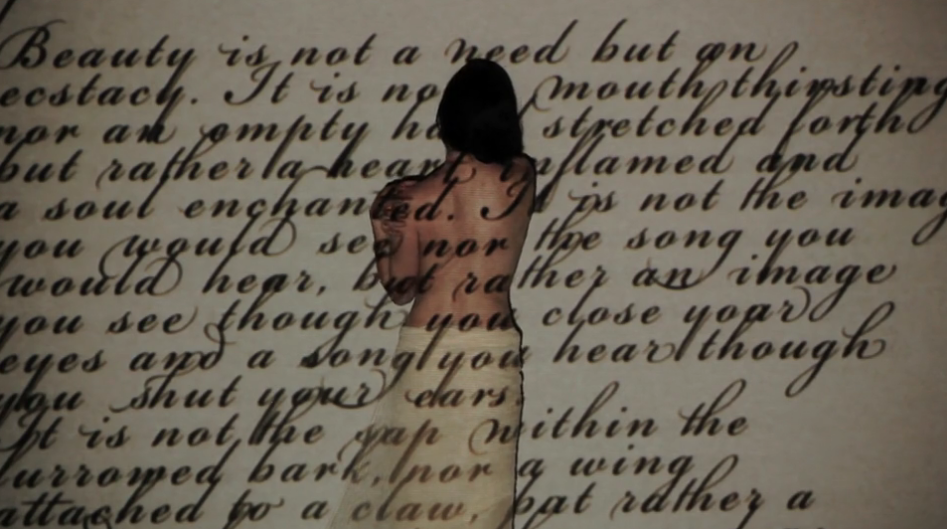 Beauty is not a need but an
ecstacy. It is not mouth thirsting
nor an empty hand stretched forth
but rather a heart inflamed and
a soul enchanted. It is not the image
you would see nor the song you
would hear, but rather an image
you see though you close your
eyes and a song you hear though
you shut your ears.
It is not the sap within the
furrowed bark, nor a wing
attached to a claw, but rather a